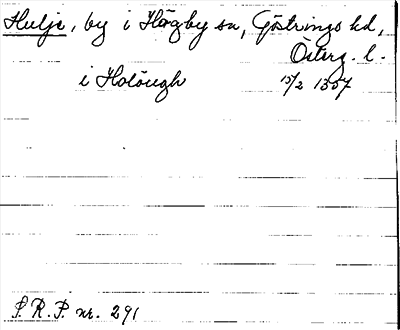 Hulje, by i Högby sn, Göstrings hd,
Österg. l.
i Holöugh 15/2 1357
S. R. P nr. 291